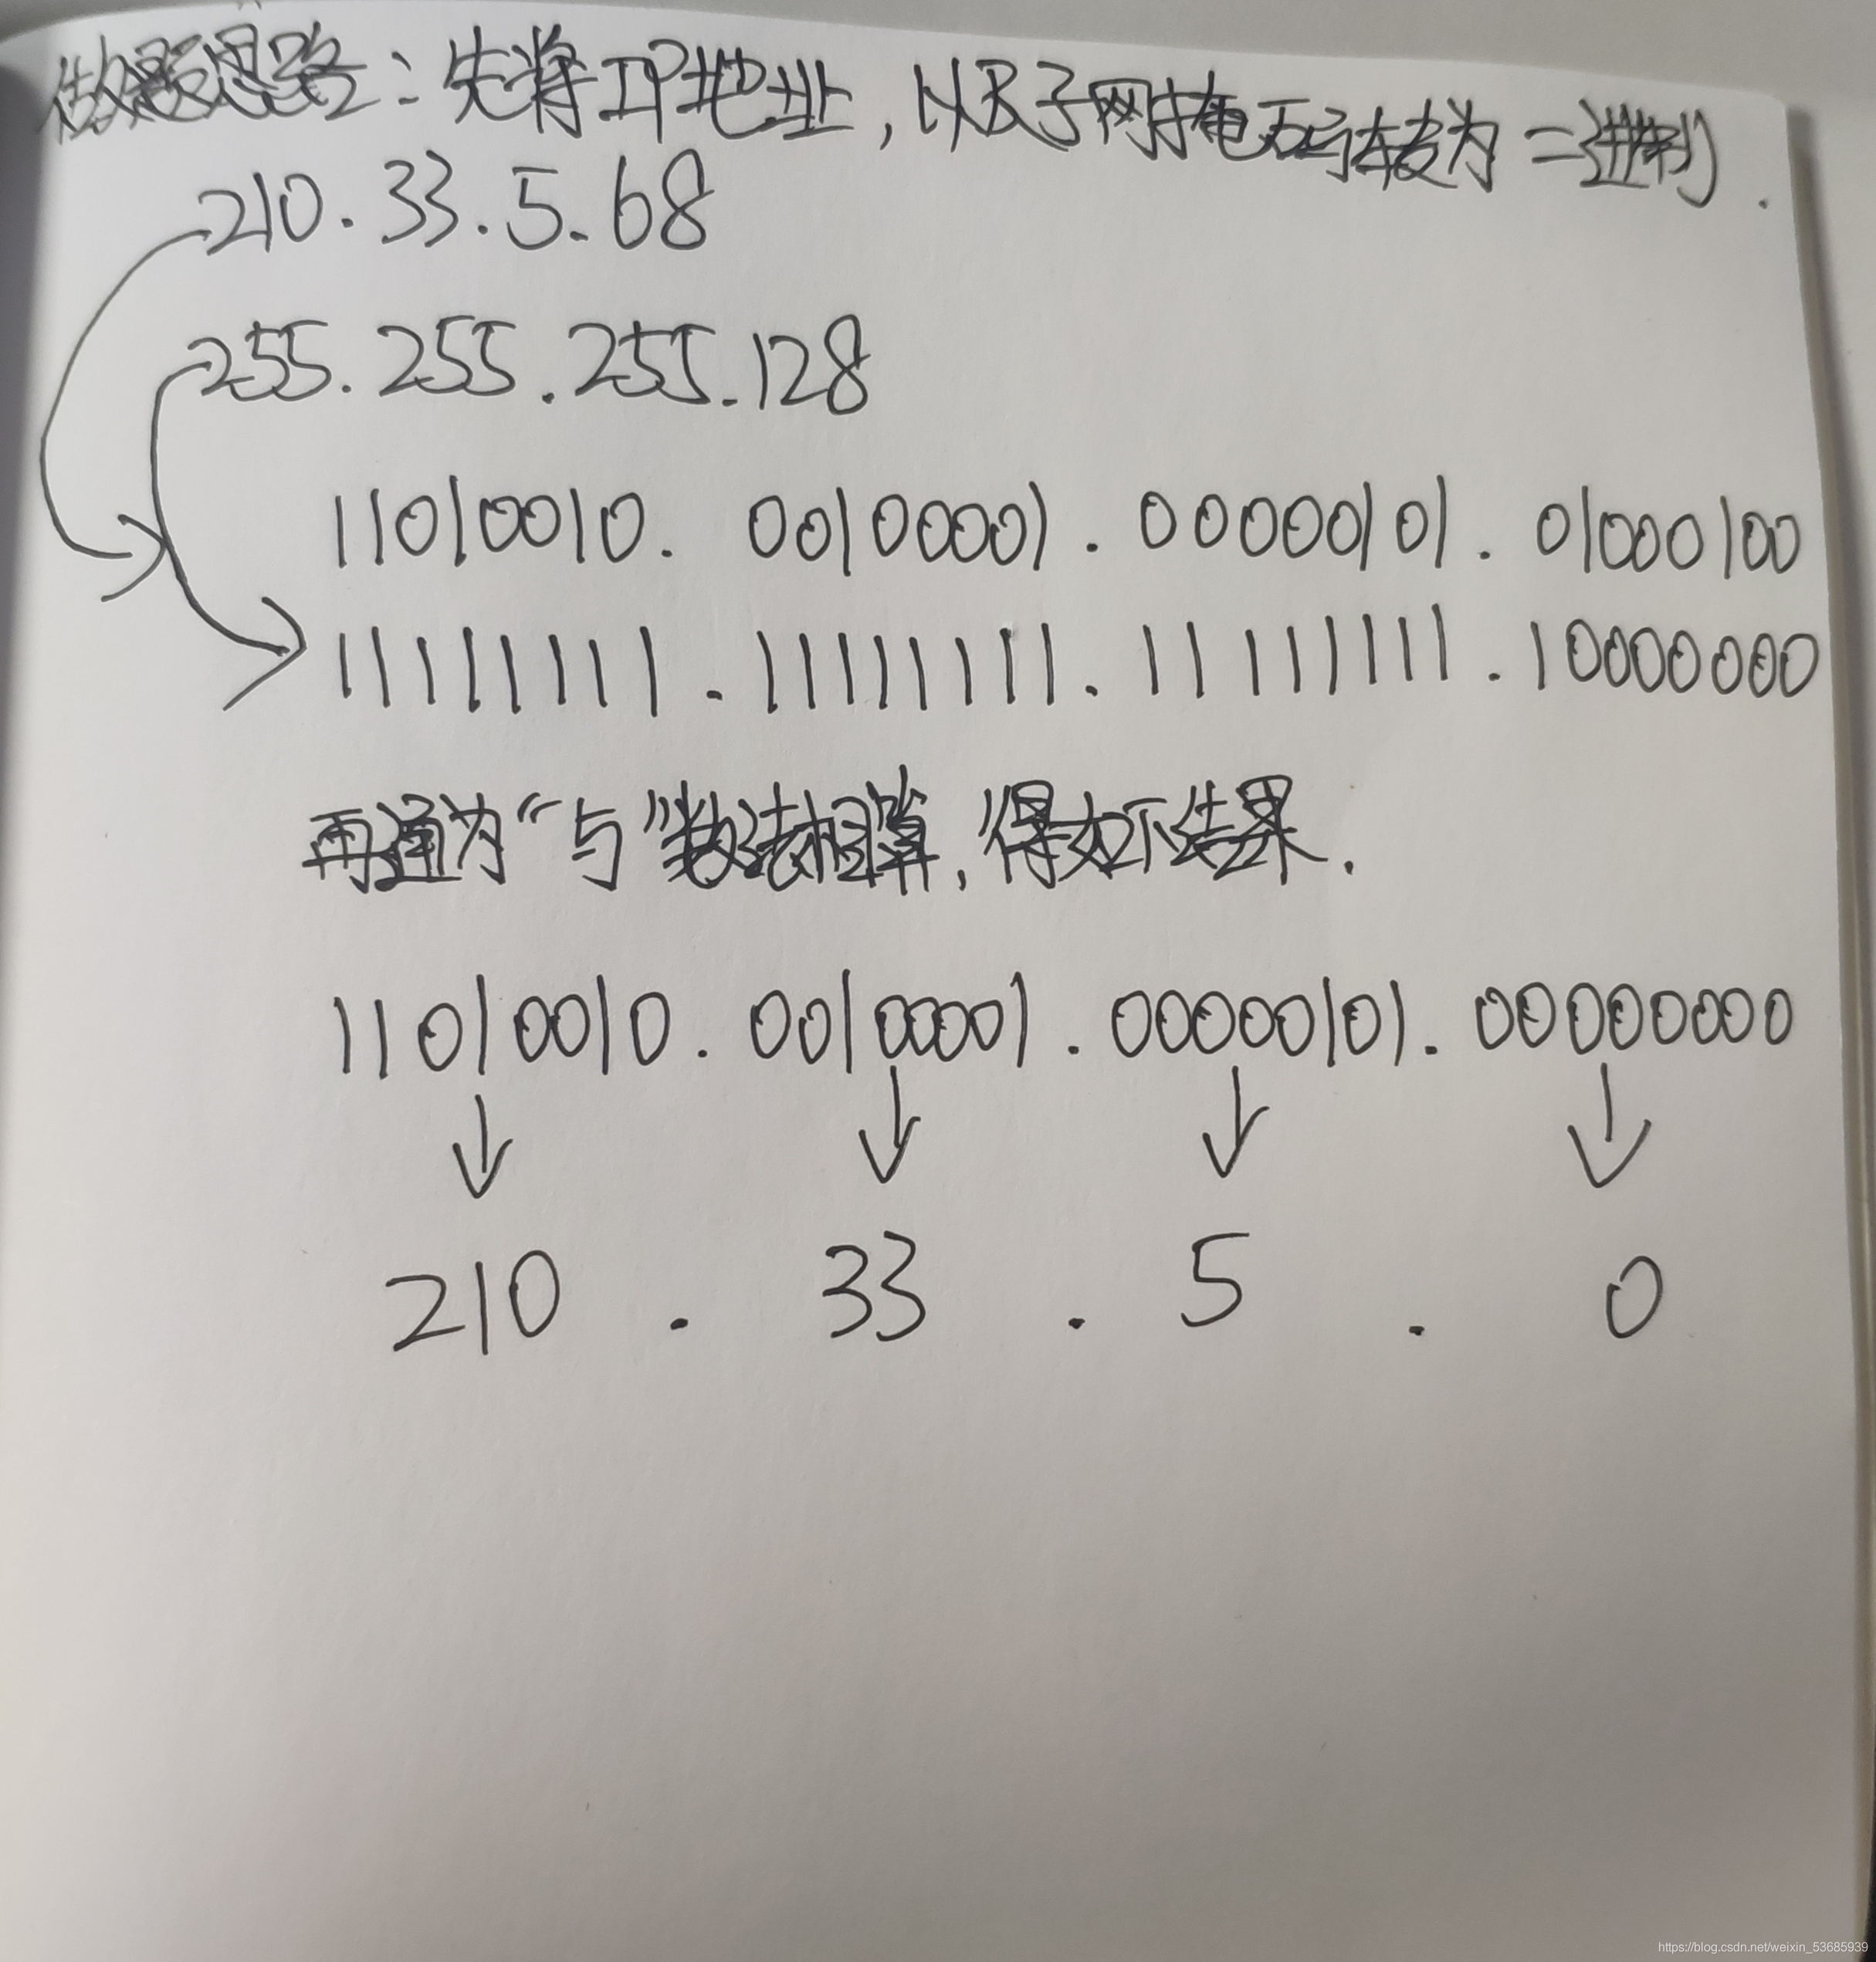 做题思路：先将IP地址，以及子网掩码转为二进制.
210.33.5.68
255.255.255.128
11010010. 00100001. 00000101. 01000100
11111111.11111111.11111111.10000000
再通为“与”数法相算，得如下结果.
11010010.00100001.00000101.00000000
210 . 33 . 5 . 0
https://blog.csdn.net/weixin_53685939